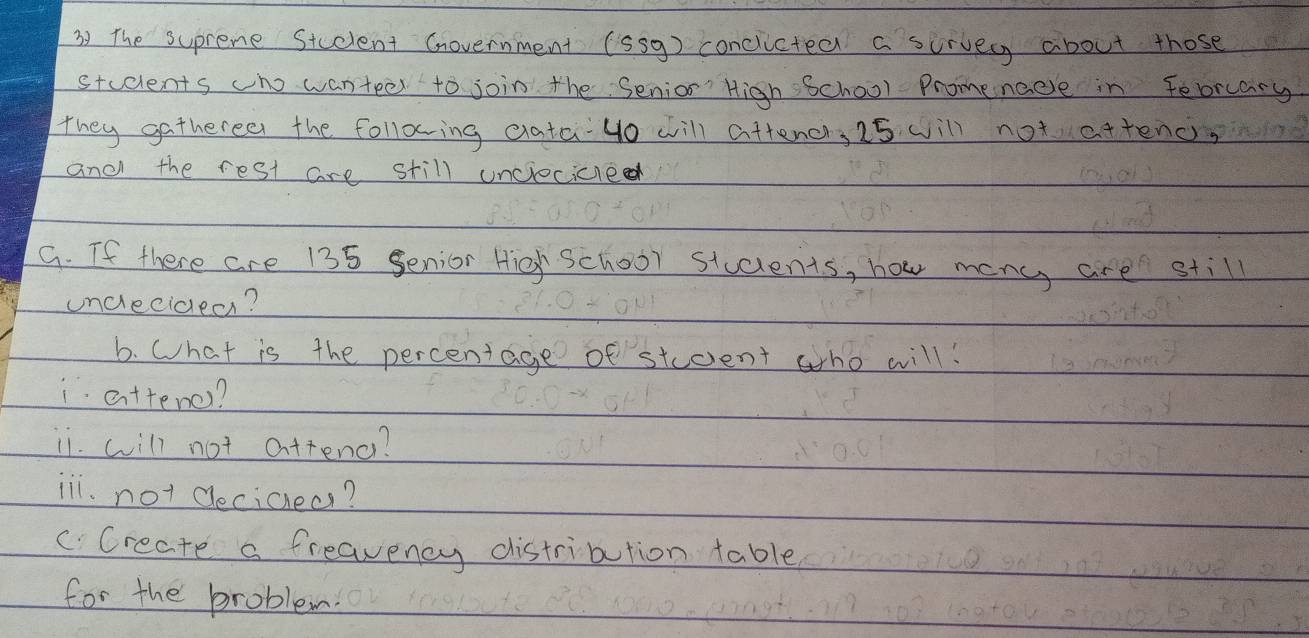 3) The Supreme Student Government (SSg) conducted a survey about those
students who wanted to join the Senior High School Promenade in February.
They gathered the following data: 40 will attend, 25 will not attend,
and the rest are still undecided
a. If there are 135 Senior High School students, how many are still
undecided?
b. What is the percentage of student who will:
i. attend?
ii. will not attend?
iii. not decided?
c. Create a frequency distribution table
for the problem.